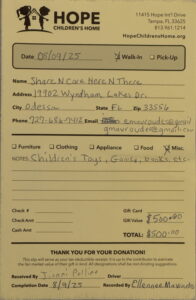 HOPE
CHILDREN'S HOME
11415 Hope Int'l Drive
Tampa, FL 33625
813.961.1214
HopeChildrensHome.org
Date 08/09/25 Walk-in Pick-Up
Name Share N Care Here N There
Address 19902 Wyndham Lakes Dr.
City Odessa State FL Zip 33556
Phone 727-656-7412 Email
gmavroudes@gmail.com
Furniture Clothing Appliance Food Misc.
NOTES Children's Toys, Games, books, etc.
Check # Gift Card
Check Amt Gift Value $500.00
Cash Amt
TOTAL: $500.00
THANK YOU FOR YOUR DONATION!
This slip will serve as your tax-deductible receipt. It is up to the contributor to estimate
the fair market value of their gift in kind. All designations shall be met donating suggestions.
Received By Driver
Completion Date 8/9/25 Recorded By